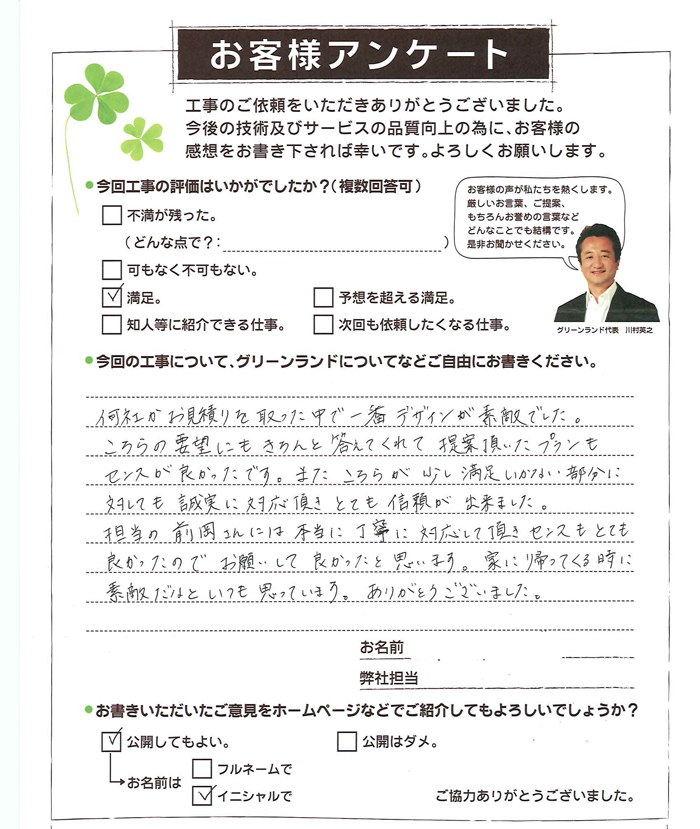 お客様アンケート
工事のご依頼をいただきありがとうございました。
今後の技術及びサービスの品質向上の為に、お客様の
感想をお書き下されば幸いです。よろしくお願いします。
今回工事の評価はいかがでしたか？（複数回答可）
不満が残った。
（どんな点で？： ）
可もなく不可もない。
満足。
予想を超える満足。
知人等に紹介できる仕事。
次回も依頼したくなる仕事。
お客様の声が私たちを熱くします。
厳しいお言葉、ご提案、
もちろんお誉めの言葉など
どんなことでも結構です。
是非お聞かせください。
グリーンランド代表 川村英之
今回の工事について、グリーンランドについてなどご自由にお書きください。
何社かお見積りを取った中で一番デザインが素敵でした。
こちらの要望にもきちんと答えてくれて提案頂いたプランも
センスが良かったです。またこちらが少し満足いかない部分に
対しても誠実に対応頂きとても信頼が出来ました。
担当の前岡さんには本当に丁寧に対応して頂きセンスもとても
良かったのでお願いして良かったと思います。家に帰ってくる時に
素敵だなといつも思っています。ありがとうございました。
お名前
弊社担当
お書きいただいたご意見をホームページなどでご紹介してもよろしいでしょうか？
公開してもよい。
公開はダメ。
お名前は
フルネームで
イニシャルで
ご協力ありがとうございました。